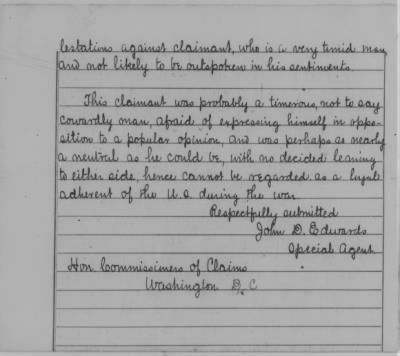 lestations against claimant, who is a very timid man,
and not likely to be outspoken in his sentiments.
This claimant was probably a timerous, not to say
cowardly man, afraid of expressing himself in oppo-
sition to a popular opinion, and was perhaps as nearly
a neutral as he could be, with no decided leaning
to either side, hence cannot be regarded as a loyal
adherent of the U.S. during the war
Respectfully submitted
John D. Edwards
Special Agent.
Hon Commissioners of Claims
Washington D.C